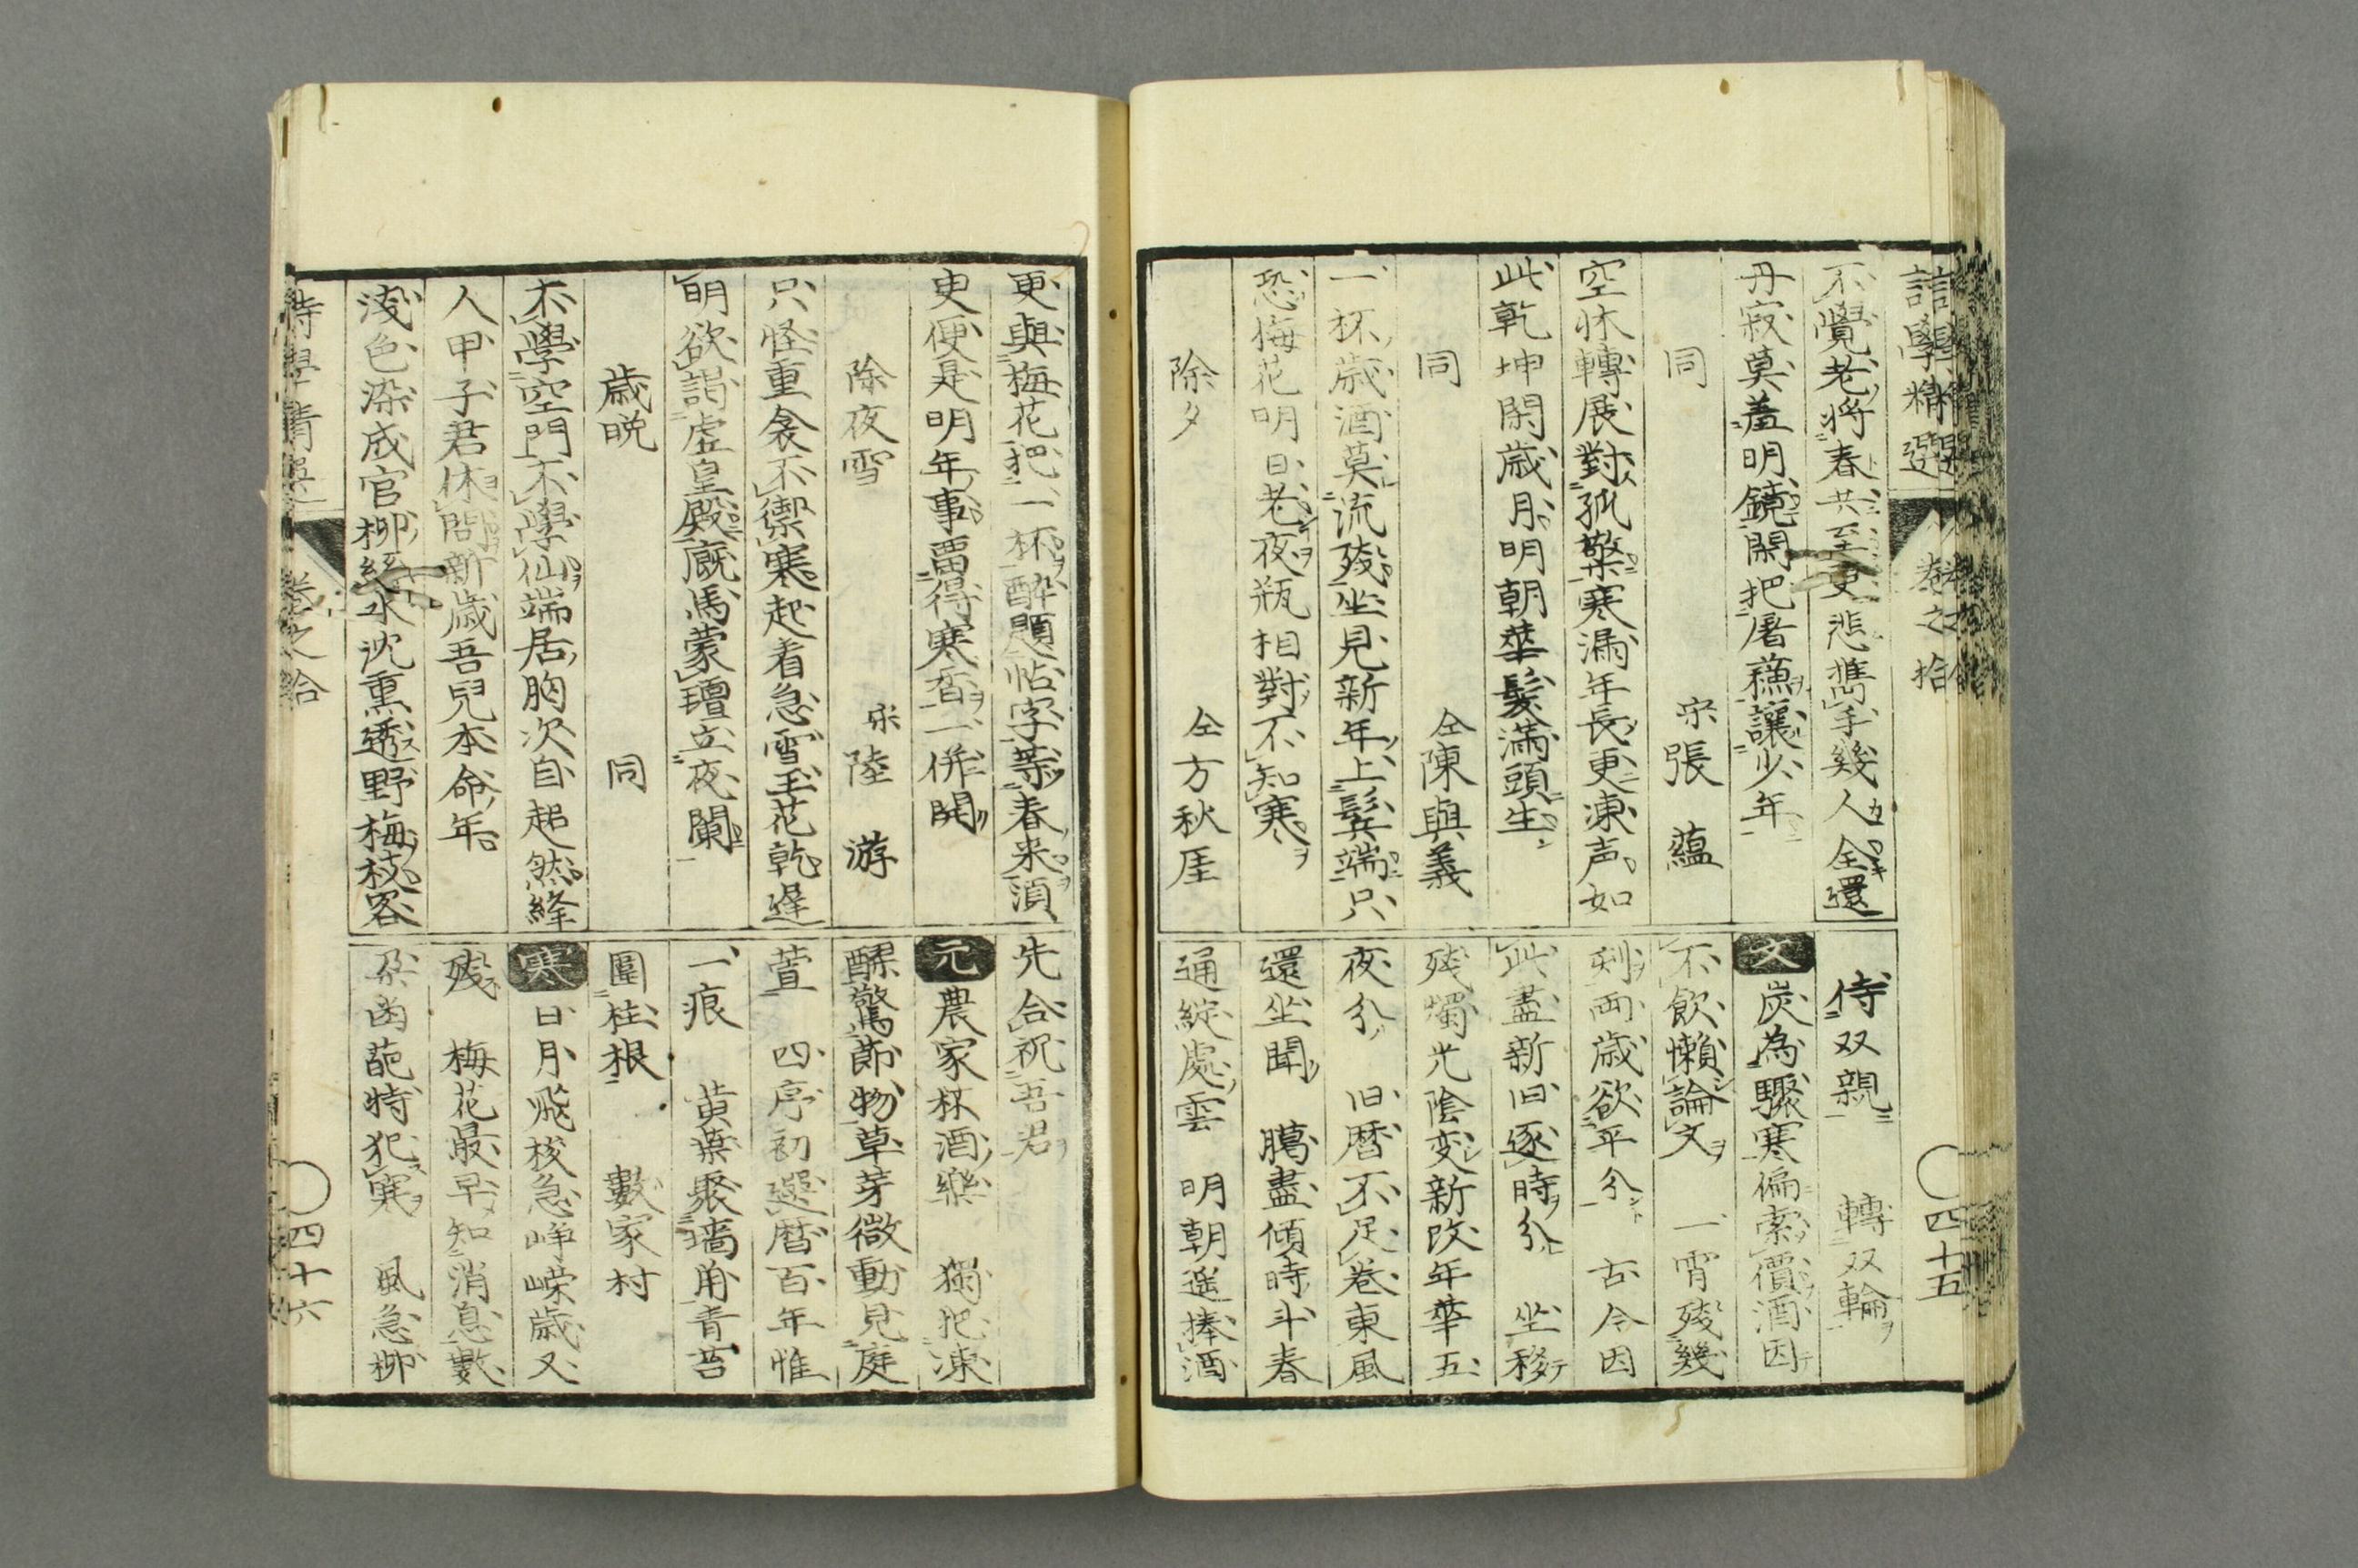 詩學精選 卷之拾 四十五
不覺老將春共至更悲攜手幾人全還
丹寂莫羞明鏡閑把屠蘓讓少年
同 宋張 蘊
空休轉展對孤檠寒漏年長更凍声如
此乾坤閑歳月明朝華髪滿頭生
同 仝陳與義
一杯歳酒莫流殘坐見新年上鬂端只
恐梅花明日老夜瓶相對不知寒
除夕 仝方秋厓
侍双親 轉双輪
文 炭為驟寒偏索價酒因
不飲懶論文 一宵殘幾
刻両歳欲平分 古今因
此盡新旧逐時分 坐移
残燭光陰変新改年華五
夜分 旧暦不足卷東風
還坐聞 臈盡傾時斗春
通綻處雲 明朝遥捧酒
更與梅花把一杯醉題帖字等春来湏
史便是明年事畱得寒香一併開
除夜雪 宋陸 游
只怪重衾不禦寒起看急雪玉花乾遲
明欲謁虚皇殿廐馬蒙氊立夜闌
歳晩 同
不學空門不學仙端居胸次自超然絳
人甲子君休問新歳吾兒本命年
浅色染成官柳絲水沈熏透野梅枝客
先合祝吾君
元 農家杯酒樂 獨把凍
醪驚節物草芽微動見庭
萱 四序初還暦百年惟
一痕 黄葉聚墻角青苔
圍柱根 數家村
寒 日月飛梭急崢嶸歳又
残 梅花最早知消息數
朶凾葩特犯寒 風急柳
卷之拾 四十六